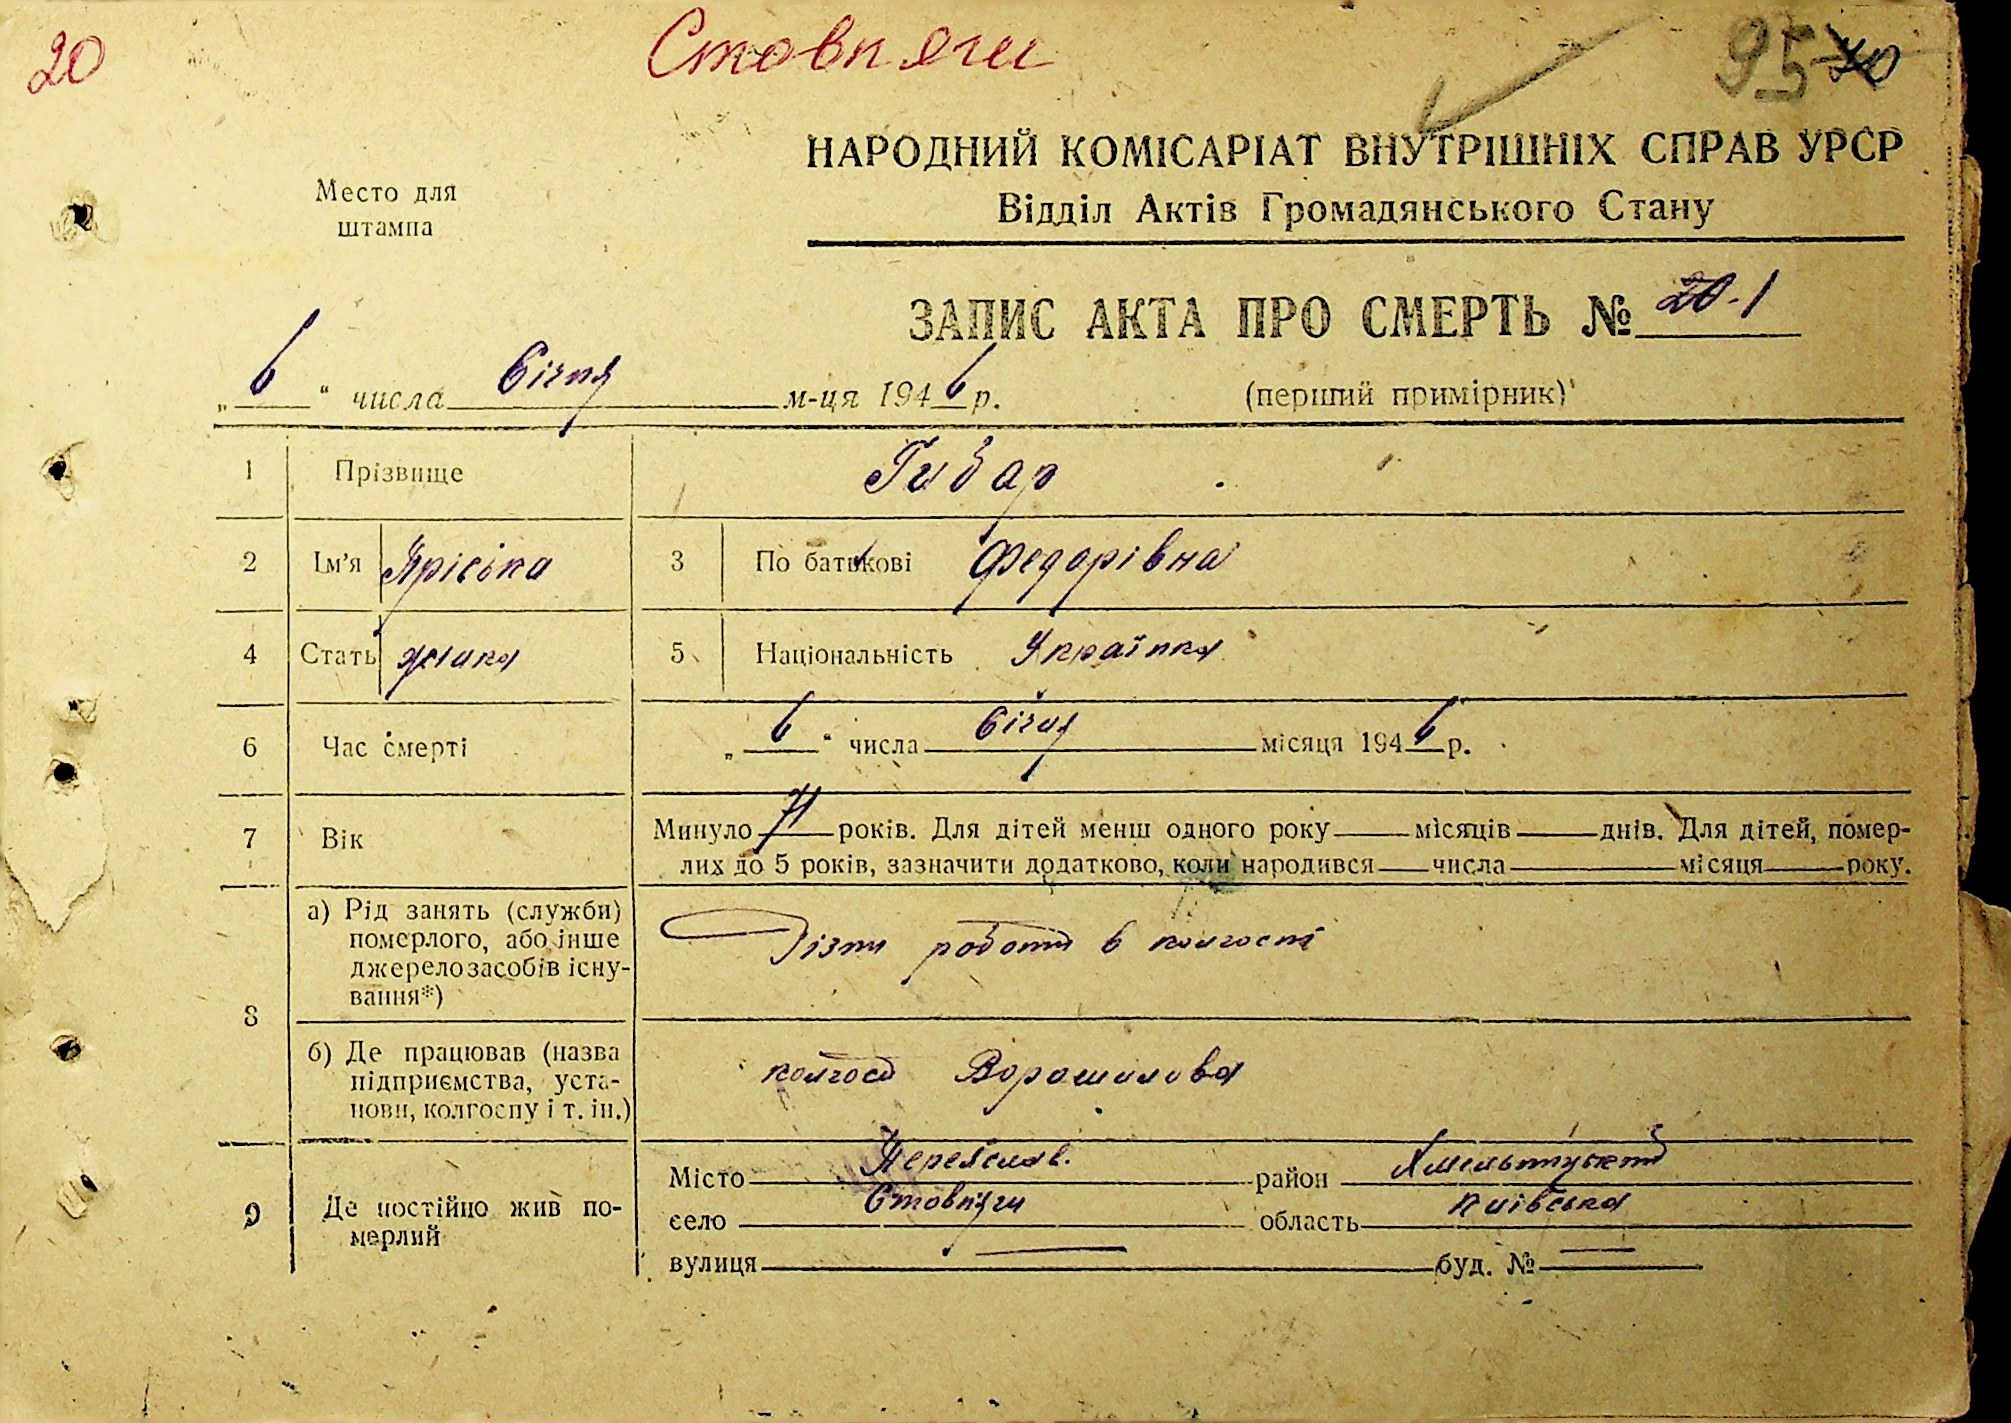 20
Стовпяги
95 20
НАРОДНИЙ КОМІСАРІАТ ВНУТРІШНІХ СПРАВ УРСР
Відділ Актів Громадянського Стану
Место для
штампа
ЗАПИС АКТА ПРО СМЕРТЬ № 20-1
„ 6 “ числа Січня м-ця 1946 р. (перший примірник)
1 Прізвище Гибар
2 Ім'я Яріська 3 По батькові Федорівна
4 Стать жінка 5 Національність Українка
6 Час смерті „ 6 “ числа Січня місяця 1946 р.
7 Вік Минуло 71 років. Для дітей менш одного року місяців днів. Для дітей, помер-
лих до 5 років, зазначити додатково, коли народився числа місяця року.
8 а) Рід занять (служби)
померлого, або інше
джерело засобів існу-
вання*)
Різни роботи в колгоспі
б) Де працював (назва
підприємства, уста-
нови, колгоспу і т. ін.)
колгосп Ворошилова
9 Де постійно жив по-
мерлий
Місто Переяслав. район Хмельницький
село Стовпяги область Київська
вулиця — буд. № —